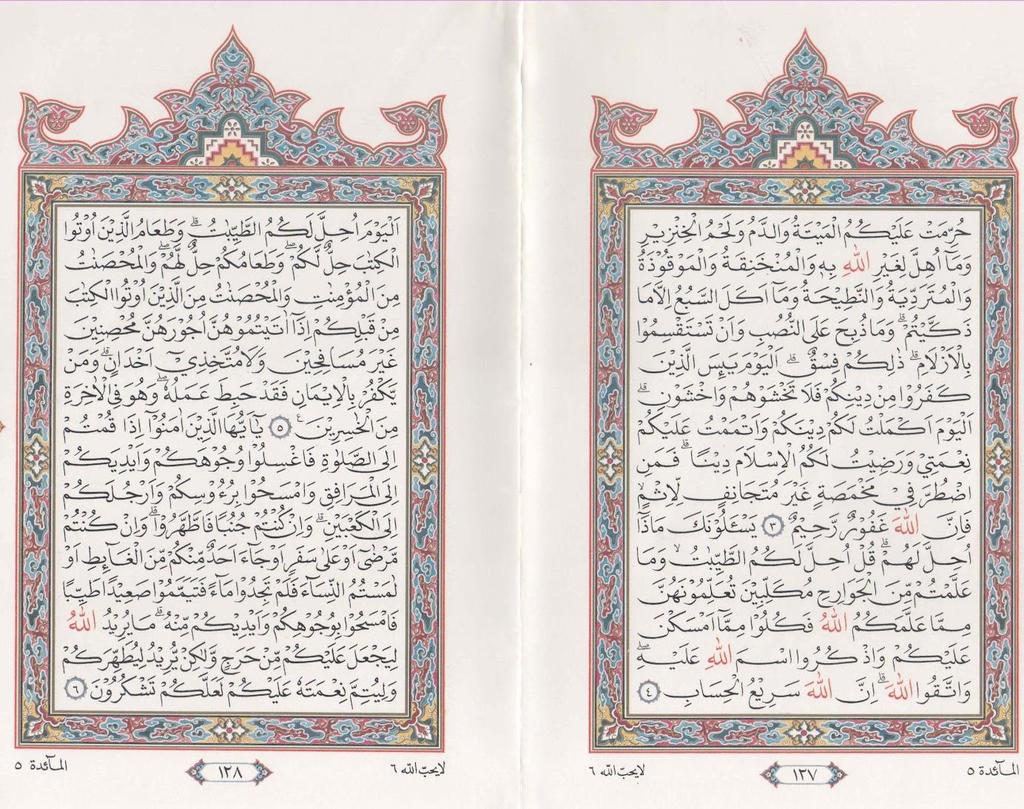 حُرِّمَتْ عَلَيْكُمُ الْمَيْتَةُ وَالدَّمُ وَلَحْمُ الْخِنْزِيْرِ
وَمَآ اُهِلَّ لِغَيْرِ اللّٰهِ بِهٖ وَالْمُنْخَنِقَةُ وَالْمَوْقُوْذَةُ
وَالْمُتَرَدِّيَةُ وَالنَّطِيْحَةُ وَمَآ اَكَلَ السَّبُعُ اِلَّا مَا
ذَكَّيْتُمْۗ وَمَا ذُبِحَ عَلَى النُّصُبِ وَاَنْ تَسْتَقْسِمُوْا
بِالْاَزْلَامِۗ ذٰلِكُمْ فِسْقٌۗ اَلْيَوْمَ يَىِٕسَ الَّذِيْنَ
كَفَرُوْا مِنْ دِيْنِكُمْ فَلَا تَخْشَوْهُمْ وَاخْشَوْنِۗ
اَلْيَوْمَ اَكْمَلْتُ لَكُمْ دِيْنَكُمْ وَاَتْمَمْتُ عَلَيْكُمْ
نِعْمَتِيْ وَرَضِيْتُ لَكُمُ الْاِسْلَامَ دِيْنًاۗ فَمَنِ
اضْطُرَّ فِيْ مَخْمَصَةٍ غَيْرَ مُتَجَانِفٍ لِّاِثْمٍۙ
فَاِنَّ اللّٰهَ غَفُوْرٌ رَّحِيْمٌ ٣ يَسْـَٔلُوْنَكَ مَاذَآ
اُحِلَّ لَهُمْۗ قُلْ اُحِلَّ لَكُمُ الطَّيِّبٰتُۙ وَمَا
عَلَّمْتُمْ مِّنَ الْجَوَارِحِ مُكَلِّبِيْنَ تُعَلِّمُوْنَهُنَّ
مِمَّا عَلَّمَكُمُ اللّٰهُ فَكُلُوْا مِمَّآ اَمْسَكْنَ
عَلَيْكُمْ وَاذْكُرُوا اسْمَ اللّٰهِ عَلَيْهِۖ
وَاتَّقُوا اللّٰهَۗ اِنَّ اللّٰهَ سَرِيْعُ الْحِسَابِ ٤
المآئدة ٥
١٢٧
لايحبّ الله ٦
اَلْيَوْمَ اُحِلَّ لَكُمُ الطَّيِّبٰتُۗ وَطَعَامُ الَّذِيْنَ اُوْتُوا
الْكِتٰبَ حِلٌّ لَّكُمْۖ وَطَعَامُكُمْ حِلٌّ لَّهُمْۖ وَالْمُحْصَنٰتُ
مِنَ الْمُؤْمِنٰتِ وَالْمُحْصَنٰتُ مِنَ الَّذِيْنَ اُوْتُوا الْكِتٰبَ
مِنْ قَبْلِكُمْ اِذَآ اٰتَيْتُمُوْهُنَّ اُجُوْرَهُنَّ مُحْصِنِيْنَ
غَيْرَ مُسَافِحِيْنَ وَلَا مُتَّخِذِيْٓ اَخْدَانٍۗ وَمَنْ
يَّكْفُرْ بِالْاِيْمَانِ فَقَدْ حَبِطَ عَمَلُهٗۖ وَهُوَ فِى الْاٰخِرَةِ
مِنَ الْخٰسِرِيْنَ ࣖ ٥ يٰٓاَيُّهَا الَّذِيْنَ اٰمَنُوْٓا اِذَا قُمْتُمْ
اِلَى الصَّلٰوةِ فَاغْسِلُوْا وُجُوْهَكُمْ وَاَيْدِيَكُمْ
اِلَى الْمَرَافِقِ وَامْسَحُوْا بِرُءُوْسِكُمْ وَاَرْجُلَكُمْ
اِلَى الْكَعْبَيْنِۗ وَاِنْ كُنْتُمْ جُنُبًا فَاطَّهَّرُوْاۗ وَاِنْ كُنْتُمْ
مَّرْضٰٓى اَوْ عَلٰى سَفَرٍ اَوْ جَاۤءَ اَحَدٌ مِّنْكُمْ مِّنَ الْغَاۤىِٕطِ اَوْ
لٰمَسْتُمُ النِّسَاۤءَ فَلَمْ تَجِدُوْا مَاۤءً فَتَيَمَّمُوْا صَعِيْدًا طَيِّبًا
فَامْسَحُوْا بِوُجُوْهِكُمْ وَاَيْدِيْكُمْ مِّنْهُۗ مَا يُرِيْدُ اللّٰهُ
لِيَجْعَلَ عَلَيْكُمْ مِّنْ حَرَجٍ وَّلٰكِنْ يُّرِيْدُ لِيُطَهِّرَكُمْ
وَلِيُتِمَّ نِعْمَتَهٗ عَلَيْكُمْ لَعَلَّكُمْ تَشْكُرُوْنَ ٦
لايحبّ الله ٦
١٢٨
المآئدة ٥